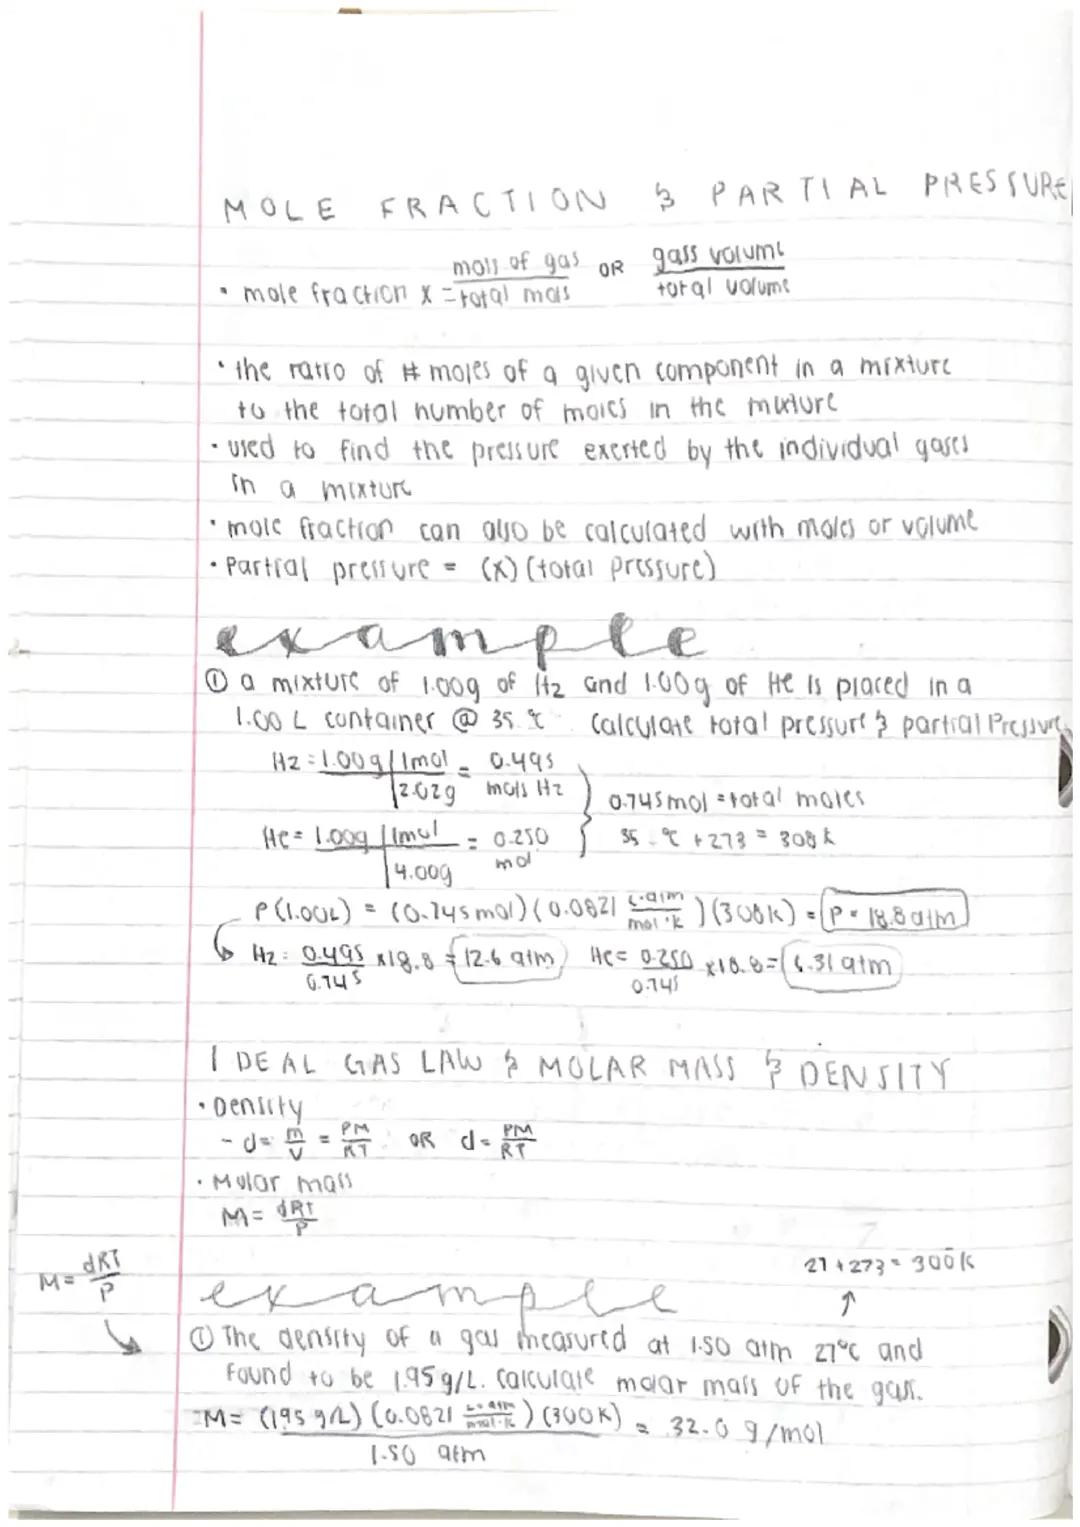 MOLE FRACTION & PARTIAL PRESSURE
mols of gas OR gass volume
• mole fraction X = total mols total volume
• the ratio of # moles of a given component in a mixture
to the total number of moles in the mixture
• used to find the pressure exerted by the individual gases
in a mixture
• mole fraction can also be calculated with moles or volume
• Partial pressure = (X) (total pressure)
example
① a mixture of 1.00g of H2 and 1.00g of He is placed in a
1.00 L container @ 35 °C calculate total pressure & partial Pressure
H2 = 1.00g | 1mol = 0.495
2.02g mols H2
0.745 mol = total moles
He = 1.00g | 1mol = 0.250
4.00g mol
35 °C + 273 = 308 K
P(1.00L) = (0.745mol) (0.0821 L·atm/mol·K) (308K) = P = 18.8 atm
H2 = 0.495/0.745 x 18.8 = 12.6 atm He = 0.250/0.745 x 18.8 = 6.31 atm
IDEAL GAS LAW & MOLAR MASS & DENSITY
• Density
- d = m/V = PM/RT OR d = PM/RT
• Molar mass
M = dRT/P
M = dRT/P
27 + 273 = 300K
example
① The density of a gas measured at 1.50 atm 27°C and
found to be 1.95g/L. calculate molar mass of the gas.
M = (1.95 g/L) (0.0821 L·atm/mol·K) (300K) = 32.0 g/mol
1.50 atm